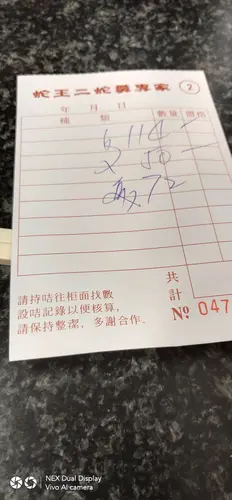 蛇王二蛇羹專家 2
年 月 日
種類 數量 價格
114
50
72
共計
請持咭往柜面找數
設咭記錄以便核算,
請保持整潔,多謝合作.
№ 047
NEX Dual Display
Vivo AI camera